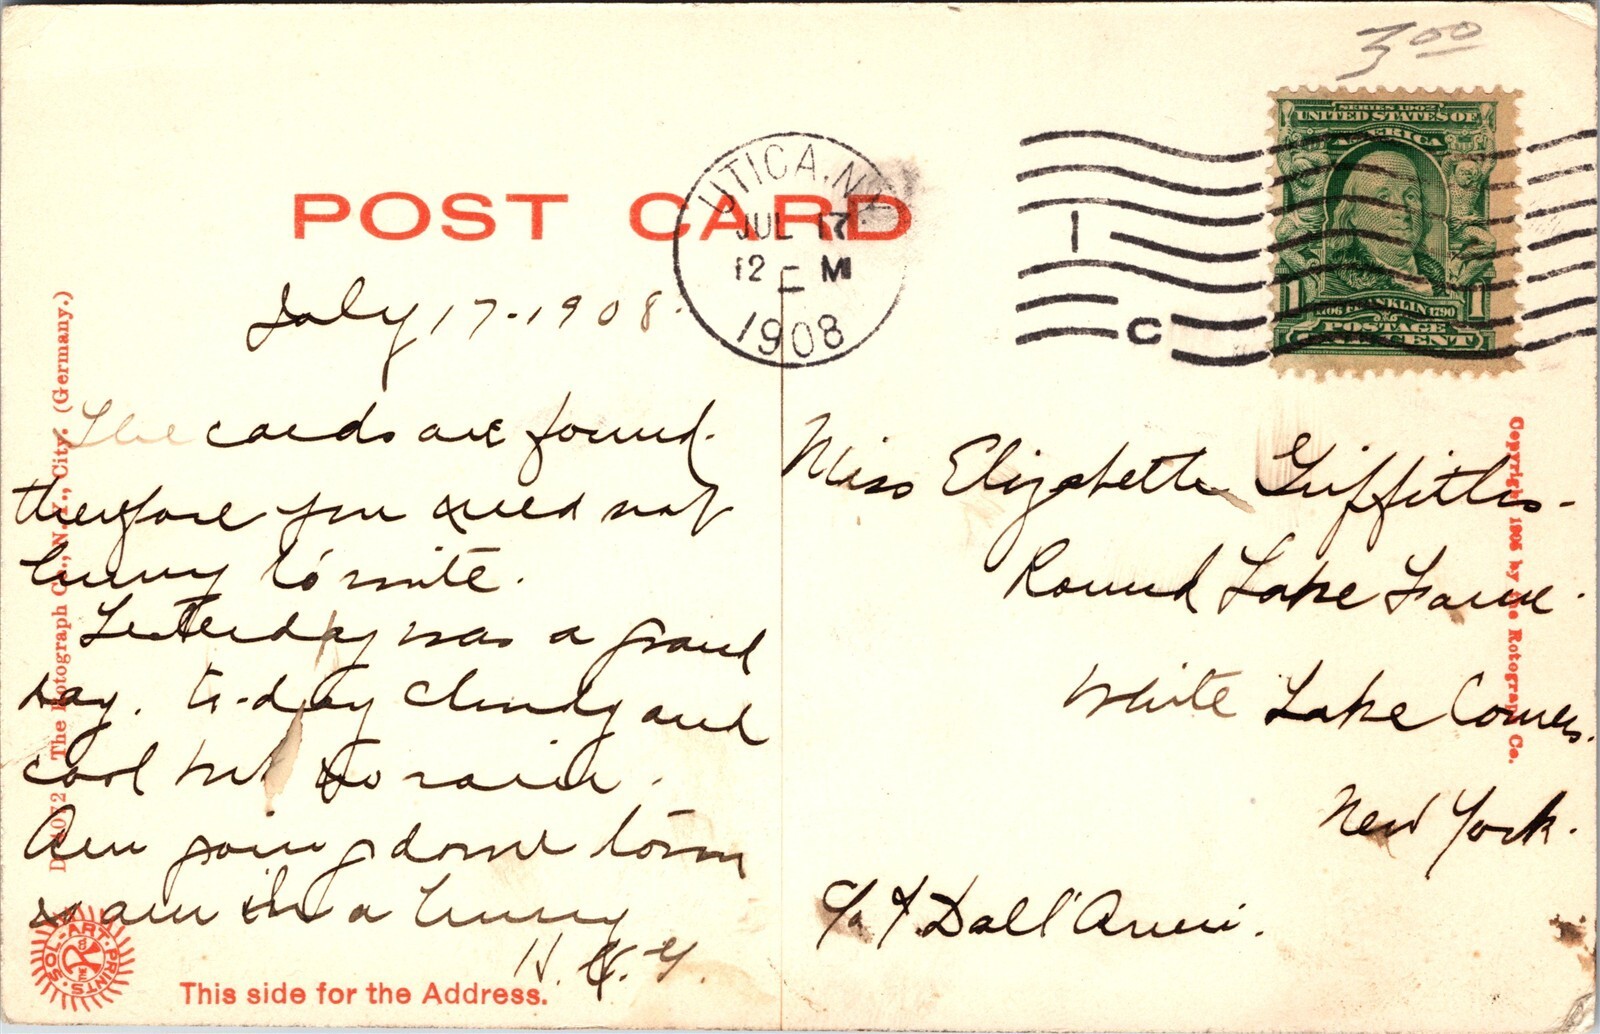 3.00
SERIES 1902
UNITED STATES OF
AMERICA
1 FRANKLIN 1790 1
POSTAGE
CENT
UTICA, N.Y.
JUL 17
12 M
1908
1
C
POST CARD
July 17-1908.
The cards are found.
therefore you need not
hurry to write.
Yesterday was a grand
day. to-day cloudy and
cool but no rain.
Am going down town
so am in a hurry
H. G.
Miss Elizabeth Griffiths-
Round Lake Farm.
White Lake Corners.
New York.
c/o Dall'Armi.
D 4072 The Rotograph Co., N.Y., City. (Germany.)
SOL-ART PRINTS
This side for the Address.
Copyright 1905 by the Rotograph Co.